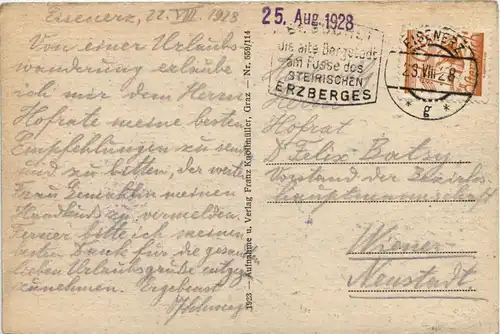 Eisenerz, 22. VIII. 1928
Von einer Urlaubs-
wanderung erlaube
ich mir dem Herrn
Hofrate meine besten
Empfehlungen zu sen-
und zu bitten, der werten
Frau Gemahlin meinen
Handkuss zu vermelden.
Ferner bitte ich meinen
besten Dank für die gesandten
lieben Urlaubsgrüße entgegen-
zunehmen. Ergebenst
1923 — Aufnahme u. Verlag Franz Knollmüller, Graz — Nr. 659/114
25. Aug. 1928
die alte Bergstadt
am Fusse des
STEIRISCHEN
ERZBERGES
EISENERZ
23.VIII.28
* g *
Herrn
Hofrat
Dr Felix Batsy
Vorstand der Bezirks-
hauptmannschaft
Wiener-
Neustadt